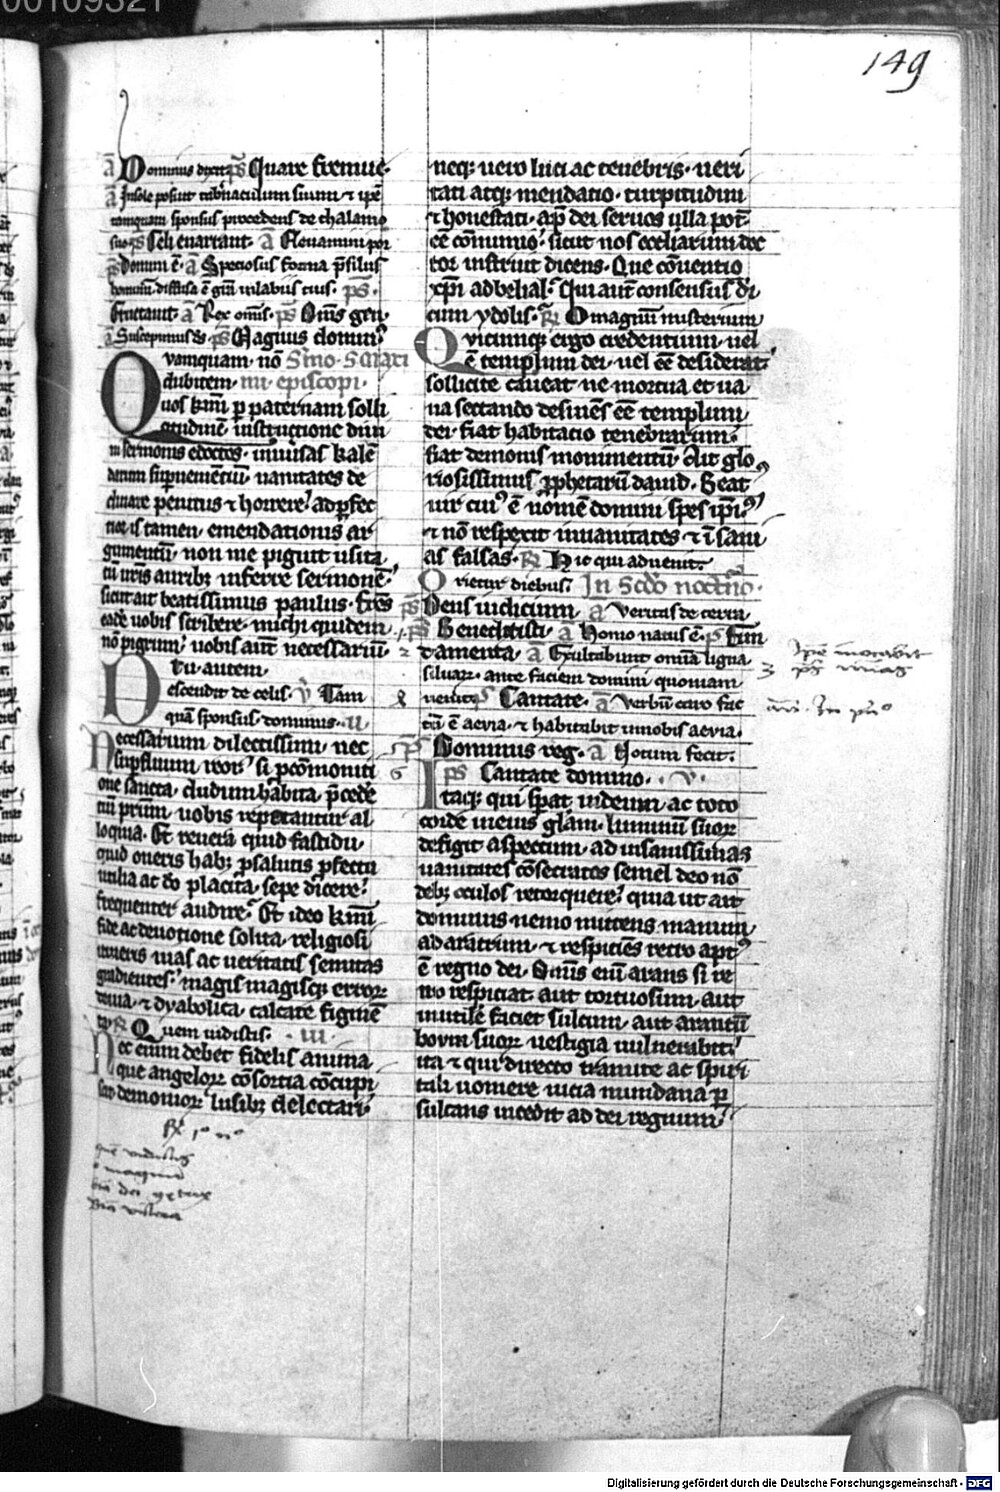 00109321
149
a Dominus dixit ps Quare fremue
a In sole posuit tab'naculum suum ⁊ ipẽ
tamquam sponsus procedens de thalamo
suo. ps Celi enarrant. a Eleuamini por
ps Domini ẽ. a Speciosus forma p̃ filiis
hominũ. diffusa ẽ gr̃a in labiis tuis. ps.
Eructauit. a Rex om̃is. ps Om̃s gen
a Suscepimus ds̃. ps Magnus domin9
Quamquam nõ Sm̃o S Maxi
dubitem. mi episcopi.
uos km̃i p paternam solli
citudinẽ instructione diui
ni sermonis edoctos. inuisas kalẽ
darum supuenientiũ. uanitates de
clinare penitus ⁊ horrere. ad pfec
tioris tamen. emendationis ar
gumentũ. non me piguit usita
tũ uris aurib; inferre sermonẽ.
sicut ait beatissimus paulus. frẽs
eadẽ uobis scribere. michi quidem
nõ pigrum. uobis aũt necessariũ.
Tu autem.
Descendit de celis. v Tam
quã sponsus dominus. ii
Necessarium dilectissimi nec
supfluum reor. si pcõmoniti
one sancta. dudum habita p̃cede
tũ primũ uobis repetantur al
loquia. Et reuera quid fastidii
quid oneris hab; p salutis pfectu
utilia ac do placita. sepe dicere.
frequenter audire. Et ideo km̃i
fide ac deuotione solita. religiosi
itineris uias ac ueritatis semitas
gradientes. magis magisq; error
deuia. ⁊ dyabolica. calcate figmẽ
ta. R Quem uidistis. iii.
Nec enim debet fidelis anima
que angelor cõsortia cõcupi
scit. demonior lusib; delectari.
R 1
quẽ uidistis
o magnũ
neq; uero luci ac tenebris. ueri
tati atq; mendatio. turpitudini
⁊ honestati. ap̃ dei seruos ulla pot
eẽ cõmunio. sicut nos eccliarum doc
tor instruit dicens. Que cõuentio
xp̃i ad belial. Qui aut consensus di
cum ydolis. R O magnũ misterium
Quicumq; ergo credentium. uel
ẽ templum dei. uel eẽ desiderat.
sollicite caueat ne mortua et ua
na sectando desinẽs eẽ templum
dei. fiat habitacio tenebrarum.
fiat demonis monimentũ. Ait glo
riosissimus pphetarũ dauid. Beat9
uir cui9 ẽ nomẽ domini spes ipi9
⁊ nõ respexit in uanitates ⁊ ĩ sani
as falsas. R Hic qui aduenit.
Orietur diebus. In Scdo nocturno.
ps Deus iudicium. a Veritas de terra
ps Benedixisti. a Homo natus ẽ. ps Fun
damenta. a Exultabunt omnia ligna
siluarz. ante faciem domini quoniam
uenit. ps Cantate. a Verbũ caro fac
tũ ẽ aeuia. ⁊ habitabit in nobis aeuia.
ps Dominus reg. a Notum fecit.
ps Cantate domino. v.
Itaq; qui sperat uidenti ac toto
corde inuens glam. luminũ suor
defigit aspectum. ad insanissimas
uanitates cõsecratos semel deo nõ
deb; oculos retorquere. quia ut ait
dominus nemo mittens manum
ad aratrum. ⁊ respiciẽs retro apt9
ẽ regno dei. Omĩs eni arans si re
tro respiciat. aut tortuosum. aut
inutilẽ faciet sulcum. aut arantiũ
boum suor uestigia uulnerabit.
ita ⁊ qui directo tramite ac spiri
tali uomere uicia mundana p
sulcans incedit ad dei regnum.
Digitalisierung gefördert durch die Deutsche Forschungsgemeinschaft - DFG